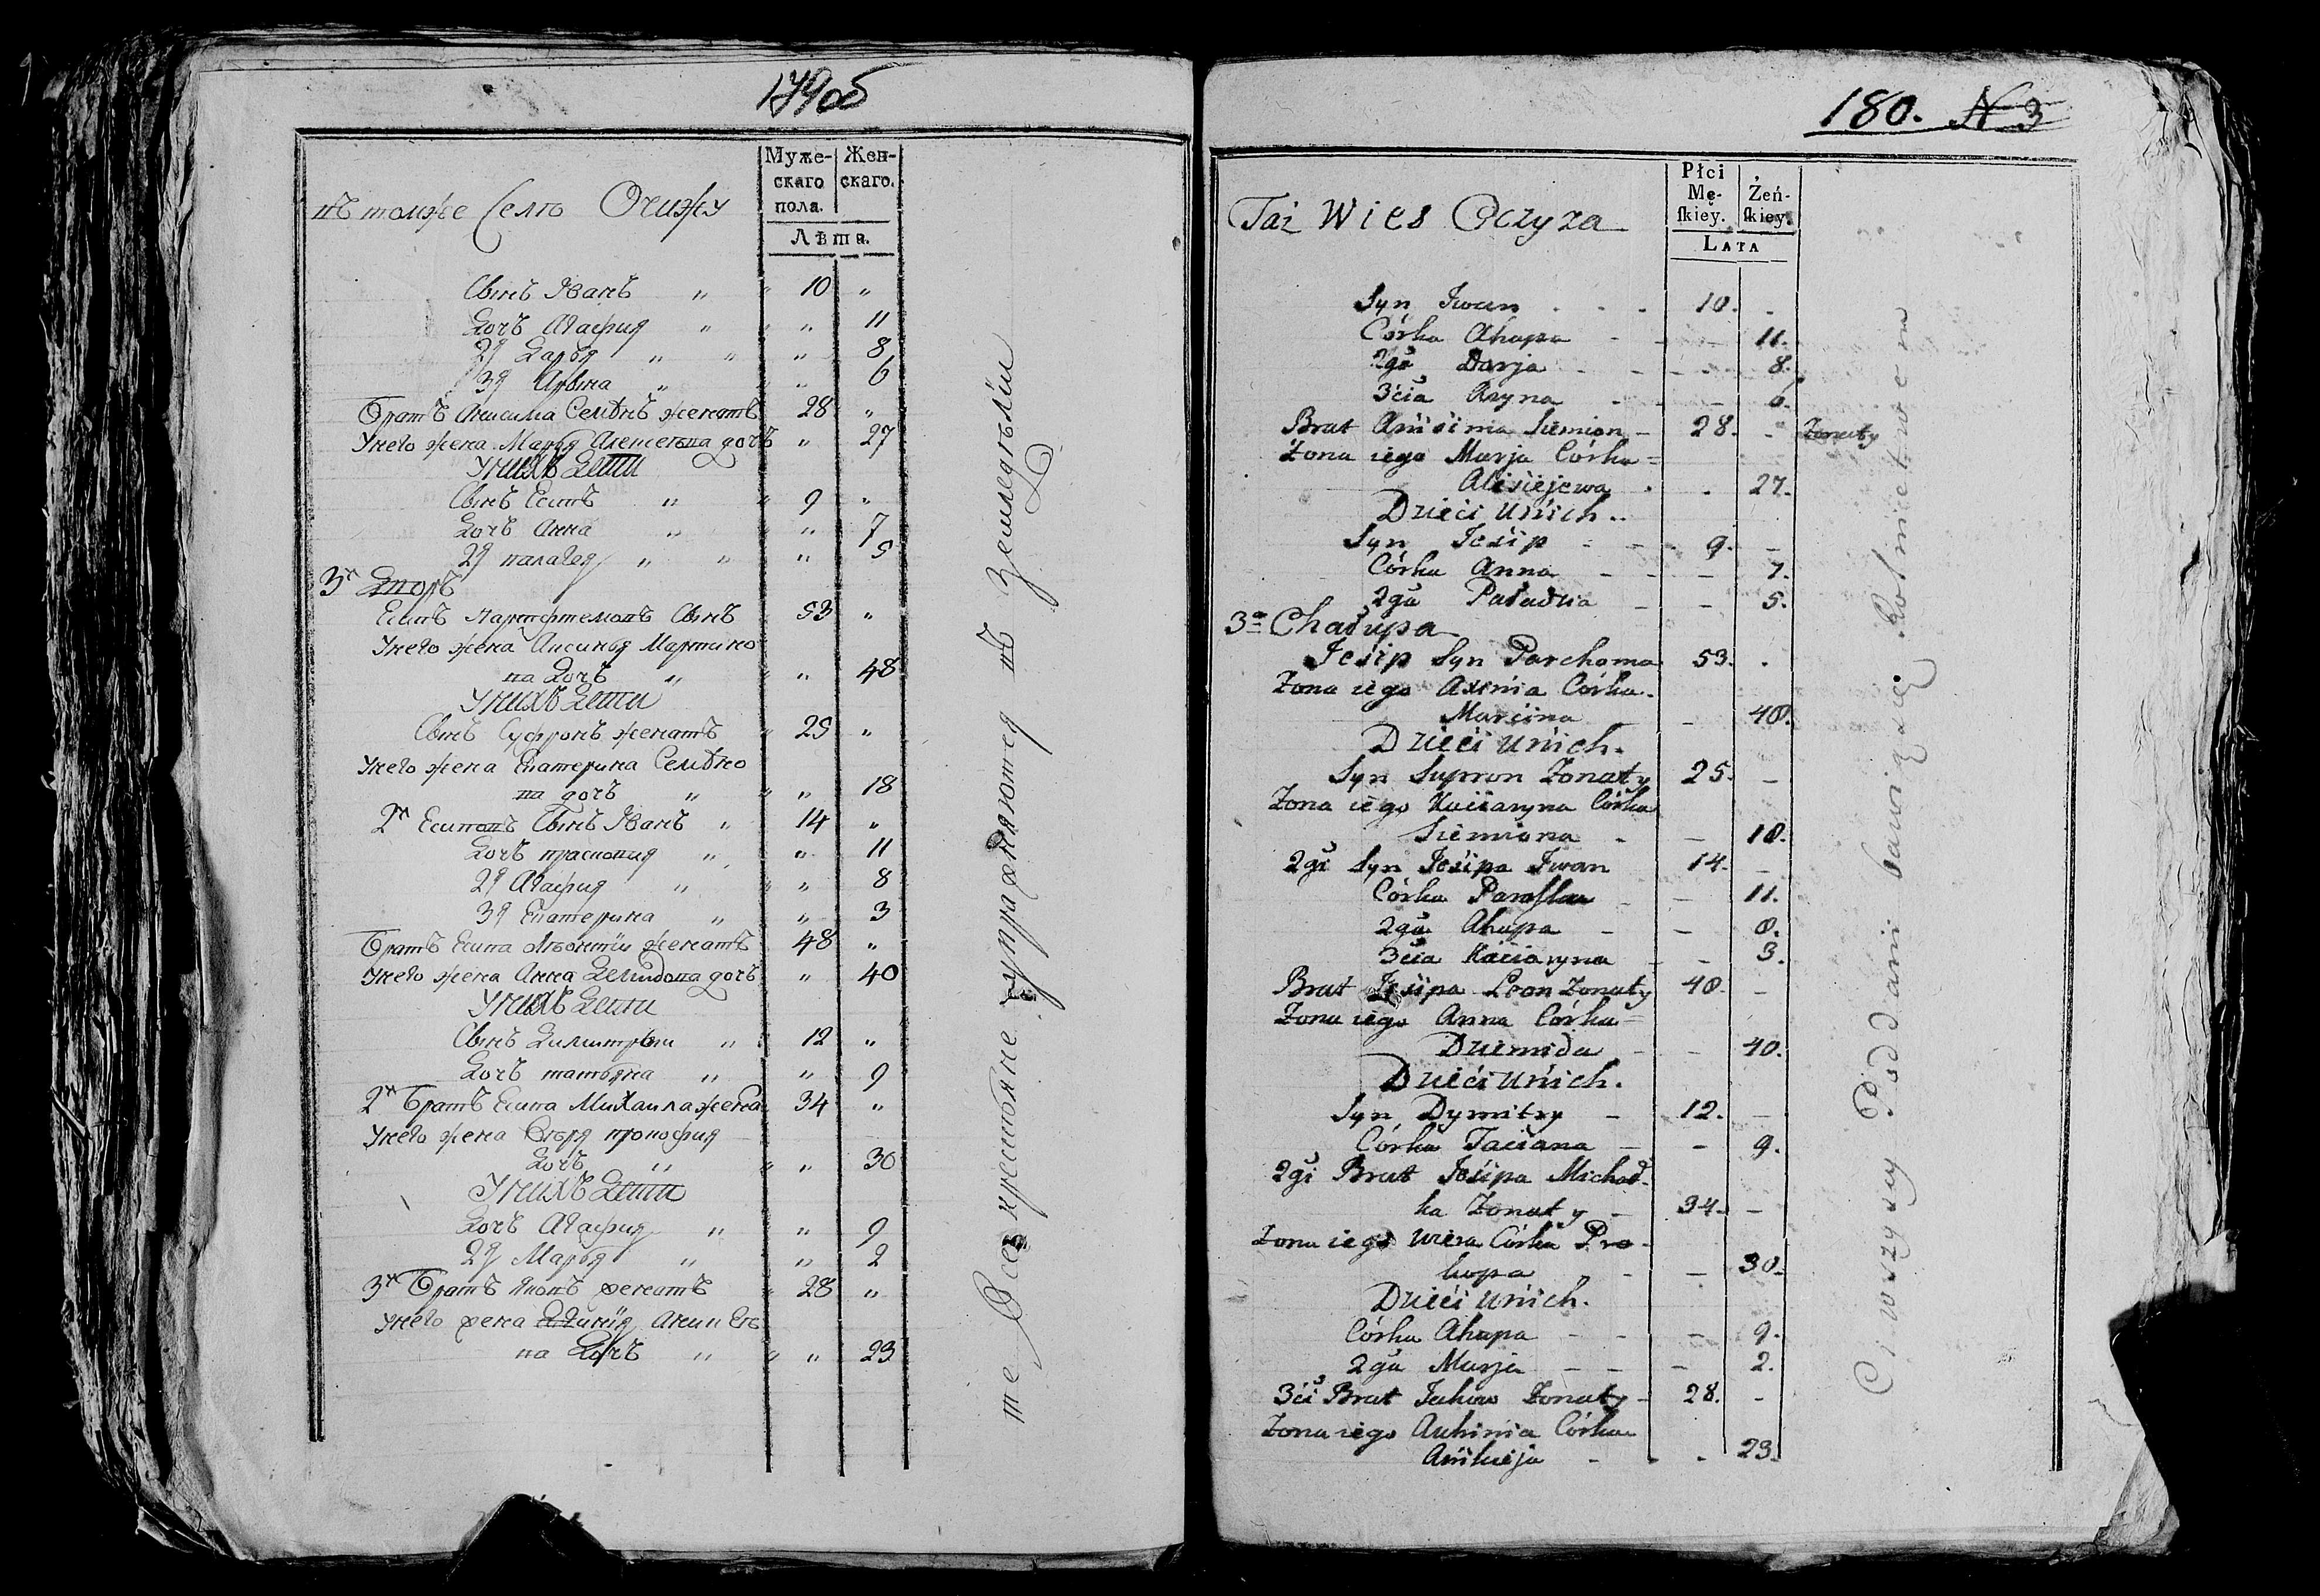 179об
Муже-
скаго
пола.
Жен-
скаго.
Лѣта.
въ томже Селѣ Очижу
Сынъ Иванъ " " 10 "
Дочь Агафия " " " 11
2я Дарья " " " 8
3я Арына " " " 6
Братъ Анисима Семѣнъ женатъ 28 "
Унего жена Марья Алексевна дочь " 27
Унихъ Дети
Сынъ Есипъ " " 9 "
Дочь Анна " " " 7
2я палагея " " " 5
3й Дворъ
Есипъ Сынъ 53 "
Унего жена Аксинья Мартино
ва Дочь " " " 48
Унихъ Дети
Сынъ Суфронъ женатъ " 25 "
Унего жена Екатерина Семѣно
ва дочь " " " 18
2й Есиповъ Сынъ Иванъ " 14 "
Дочь прасковия " " 11
2я Агафия " " " 8
3я Екатерина " " 3
Братъ Есипа Лѣонтіи женатъ 48 "
Унего жена Анна Демидова дочь " 40
Унихъ Дети
Сынъ Димитрыи " " 12 "
Дочь татьяна " " 9
2й Братъ Есипа Михаила жена 34 "
Унего жена Вѣра прокофия
Дочь " " " 30
Унихъ Дети
Дочь Агафия " " 9
2я Марья " " 2
3й Братъ Яковъ женатъ " 28 "
Унего жена
ва Дочь " " " 23
те Все крестьяне упражняются въ Земледѣліи
180. N 3
Płci
Mę-
ſkiéy.
Żeń-
ſkiey.
LATA
Taż Wies Oczyza
Syn Iwan . . . 10. .
Córka Ahapa - - - 11.
2ga Darja - - - 8.
3cia Aryna - - - 6.
Brat Anisima Siemion - 28. - Żonaty
Żona iego Marja Córka =
Alisiejewa . . 27.
Dzieci Unich..
Syn Iesip - - 9. -
Córka Anna - - 7.
2ga Paładuia - - 5.
3a Chałupa
Iesip Syn Parchoma 53. .
Żona iego Axinia Córka.
Marcina - 48.
Dzieci Unich.
Syn Supron Żonaty 25. -
Żona iego Kaciaryna Córka
Siemiona - - 18.
2gi Syn Iesipa Iwan 14. -
Córka Paraſka - - 11.
2ga Ahapa - - 8.
3cia Kaciaryna - - 3.
Brat Iesipa Leon Żonaty 48. -
Żona iego Anna Córka =
Dziemida - - 40.
Dzieci Unich.
Syn Dymitry - 12. -
Córka Taciana - - 9.
2gi Brat Iesipa Michał-
ka Żonaty - 34. -
Żona iego Wiera Córka Pro-
kopa - - 30.
Dzieci Unich.
Córka Ahapa - - - 9.
2ga Marja - - - 2.
3ci Brat Jakow Żonaty - 28. -
Żona iego Auhinia Córka
Anikieja - - . 23.
Ci wszyscy Poddani bawią się Rolnictwem